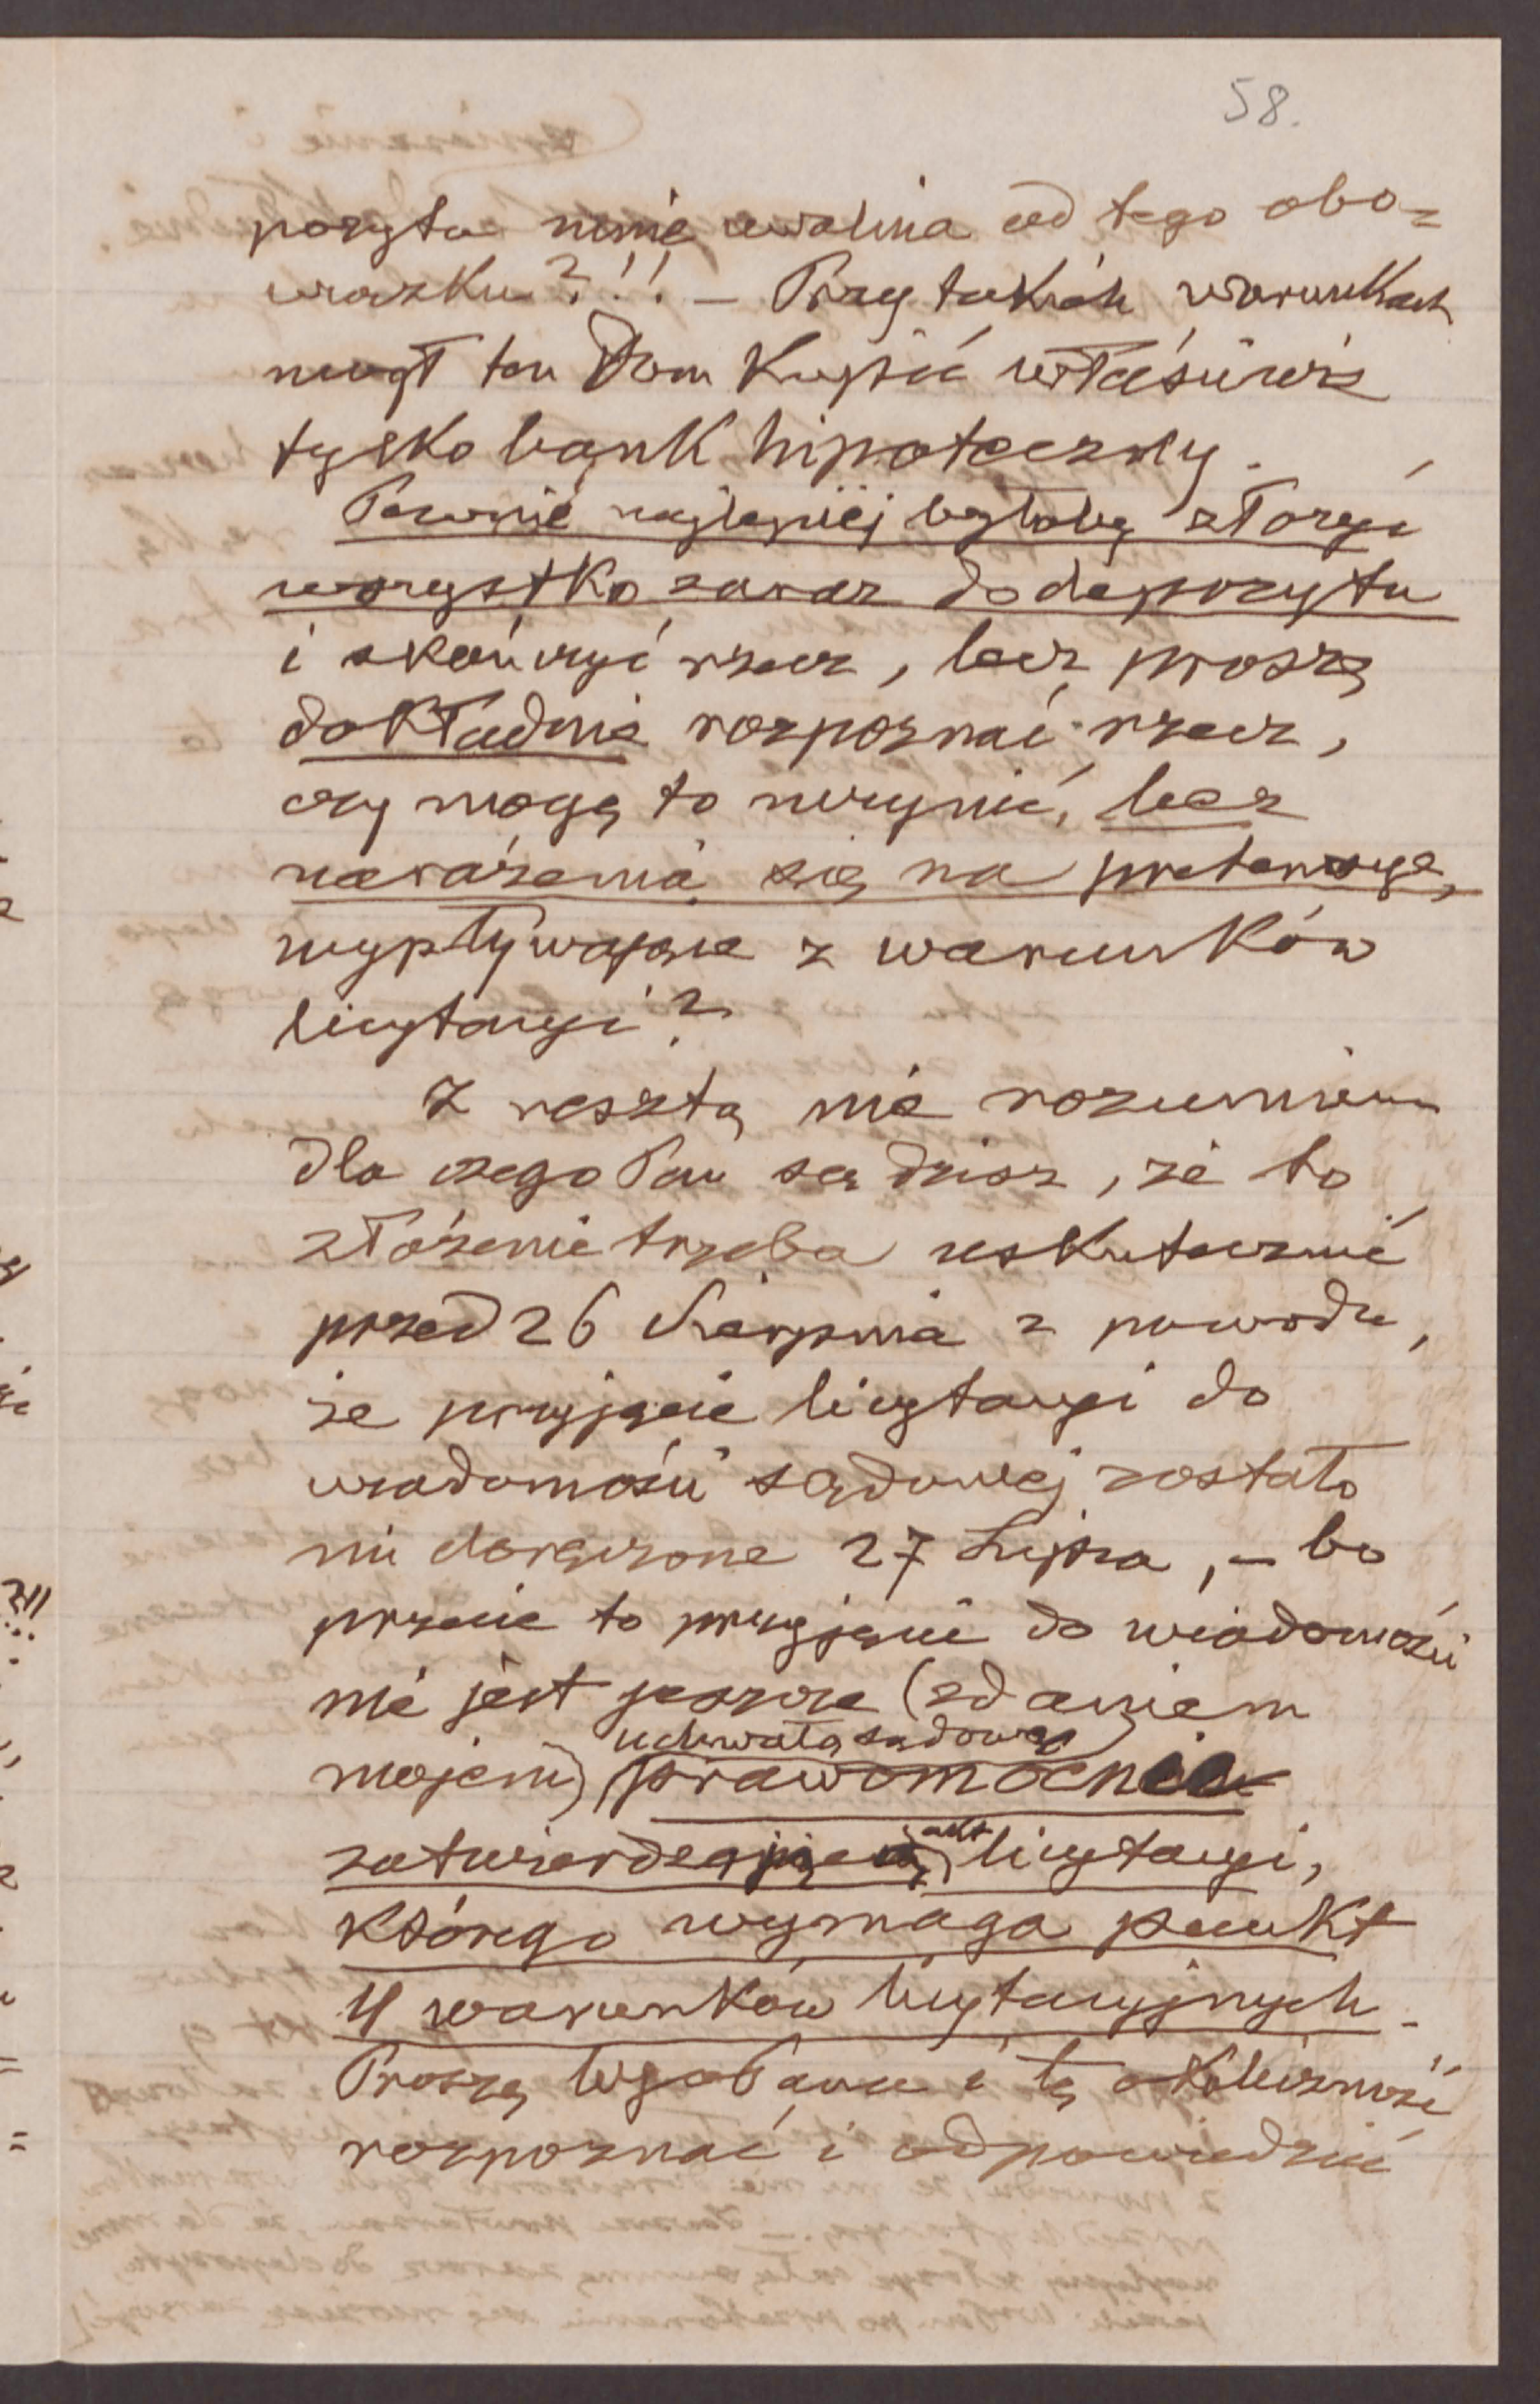 58.
pozytu mnie uwalnia od tego obo=
wiązku?!! – Przy takich warunkach
mógł ten Dom kupić właściwie
tylko bank hipoteczny.
Pewnie najlepiej byłoby złożyć
wszystko zaraz do depozytu
i skończyć rzecz, lecz proszę
dokładnie rozpoznać rzecz,
czy mogę to uczynić, bez
narażenia się na pretensye,
wypływające z warunków
licytacyi?
Z resztą nie rozumiem
dla czego Pan sądzisz, że to
złożenie trzeba uskutecznić
przed 26 Sierpnia z powodu,
że przyjęcie licytacyi do
wiadomości sądowej zostało
mi doręczone 27 Lipca, – bo
przecie to przyjęcie do wiadomości
nie jest jeszcze (zdaniem
uchwałą sądową
mojem) prawomocnie
akt
zatwierdzającą licytacyi,
którego wymaga punkt
4 warunków licytacyjnych.
Proszę Wgo Pana i tę okoliczność
rozpoznać i odpowiedzieć